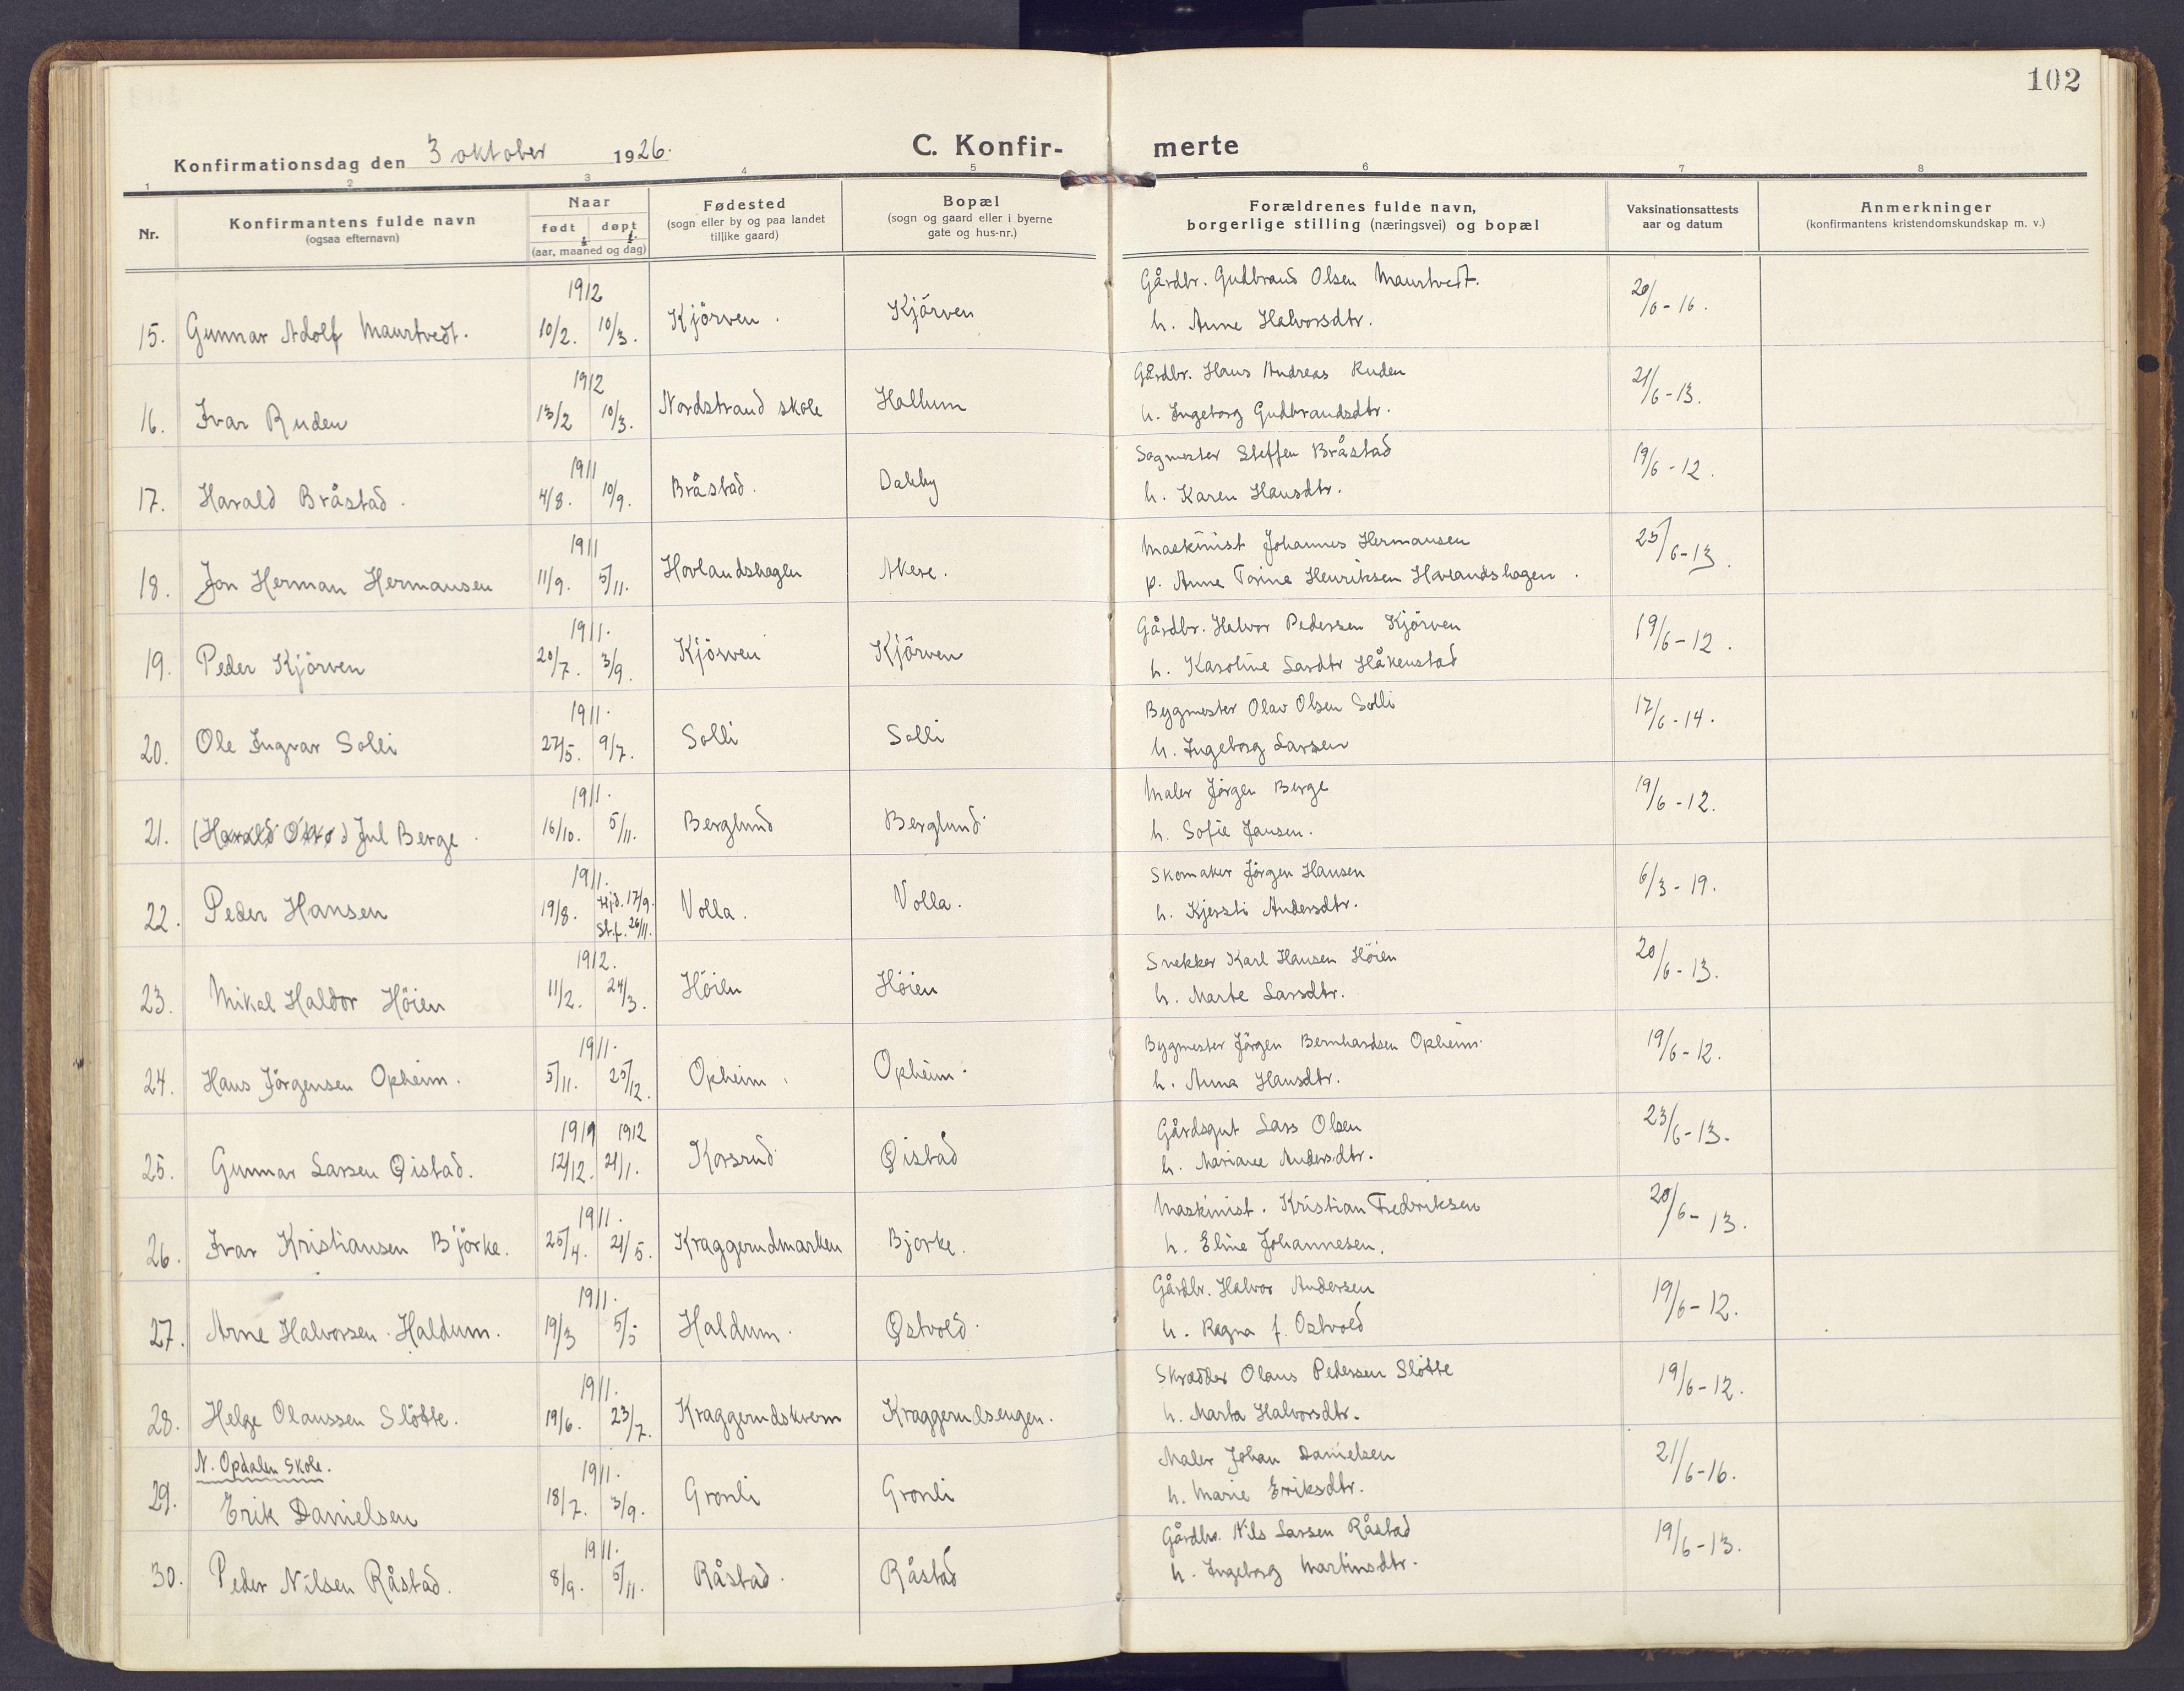 102
Konfirmationsdag den 3 oktober 1926.
C. Konfir- merte
1 2 3 4 5 6 7 8
Nr.
Konfirmantens fulde navn
(ogsaa efternavn)
Naar
født døpt
(aar, maaned og dag)
Fødested
(sogn eller by og paa landet
tillike gaard)
Bopæl
(sogn og gaard eller i byerne
gate og hus-nr.)
Forældrenes fulde navn,
borgerlige stilling (næringsvei) og bopæl
Vaksinationsattests
aar og datum
Anmerkninger
(konfirmantens kristendomskundskap m. v.)
1912 Gårdbr. Gudbrand Olsen Maurtvedt.
15. Gunnar Adolf Maurtvedt. 10/2. 10/3. Kjörven. Kjörven h. Anne Halvorsdtr. 20/6-16.
1912 Gårdbr. Hans Andreas Ruden
16. Ivar Ruden 13/2 10/3. Nordstrand skole Hallum h. Ingeborg Gudbrandsdtr. 21/6-13.
1911 Sagmester Steffen Bråstad
17. Harald Bråstad. 4/8. 10/9. Bråstad. Dahby h. Karen Hansdtr. 19/6-12.
1911 Maskinist Johannes Hermansen
18. Jon Herman Hermansen 11/9. 5/11. Hovlandshagen Akere. p. Anne Torine Henriksen Hovlandshagen. 25/6-13.
1911. Gårdbr. Halvor Pedersen Kjörven
19. Peder Kjörven 20/7. 3/9. Kjörven Kjörven h. Karoline Larsdtr Håkenstad 19/6-12.
1911. Bygmester Olav Olsen Solli
20. Ole Ingvar Solli 27/5. 9/7. Solli Solli h. Ingeborg Larsen 17/6-14.
1911. Maler Jörgen Berge
21. (Harald Otto) Jul Berge. 16/10. 5/11. Berglund Berglund h. Sofie Jansen. 19/6-12.
1911. Skomaker Jörgen Hansen
22. Peder Hansen 19/8. Hjd. 17/9. St.f. 26/11. Volla. Volla. h. Kjersti Andersdtr. 6/3-19.
1912. Snekker Karl Hansen Höien
23. Mikal Haldor Höien 11/2. 24/3. Höien Höien h. Marte Larsdtr. 20/6-13.
1911. Bygmester Jörgen Bernhardsen Opheim
24. Hans Jörgensen Opheim. 5/11. 25/12. Opheim. Opheim. h. Anna Hansdtr. 19/6-12.
1911 1912 Gårdsgut Lars Olsen
25. Gunnar Larsen Øistad. 12/12. 21/1. Korsrud Øistad h. Mariane Andersdtr. 23/6-13.
1911. Maskinist. Kristian Fredriksen
26. Ivar Kristiansen Björke. 25/4. 21/5. Kraggerudmarken Bjorke. h. Eline Johannesen. 20/6-13.
1911. Gårdbr. Halvor Andersen
27. Arne Halvorsen Haldum. 19/3 5/5 Haldum. Østvold. h. Ragna f. Ostvold 19/6-12.
1911. Skrædder Olaus Pedersen Slötte
28. Helge Olaussen Slötte. 19/6. 23/7. Kraggerudskvern Kraggerudsengen. h. Marta Halvorsdtr. 19/6-12.
N. Opdalen skole.
1911. Maler Johan Danielsen
29. Erik Danielsen 18/7. 3/9. Gronli Gronli h. Marie Eriksdtr. 21/6-16.
1911. Gårdbr. Nils Larsen Råstad
30. Peder Nilsen Råstad. 8/9. 5/11. Råstad. Råstad h. Ingeborg Martinsdtr. 19/6-13.